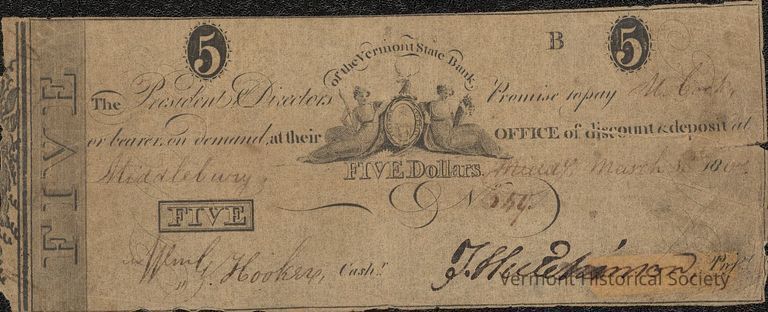 5 B 5
FIVE
of the Vermont State Bank
The President & Directors Promise to pay M. Cook,
or bearer, on demand, at their OFFICE of discount & deposit at
Middlebury, FIVE Dollars. March 180
No
FIVE
Hooker, Cash.r T. Hutchinson, Pres.t
Vermont Historical Society